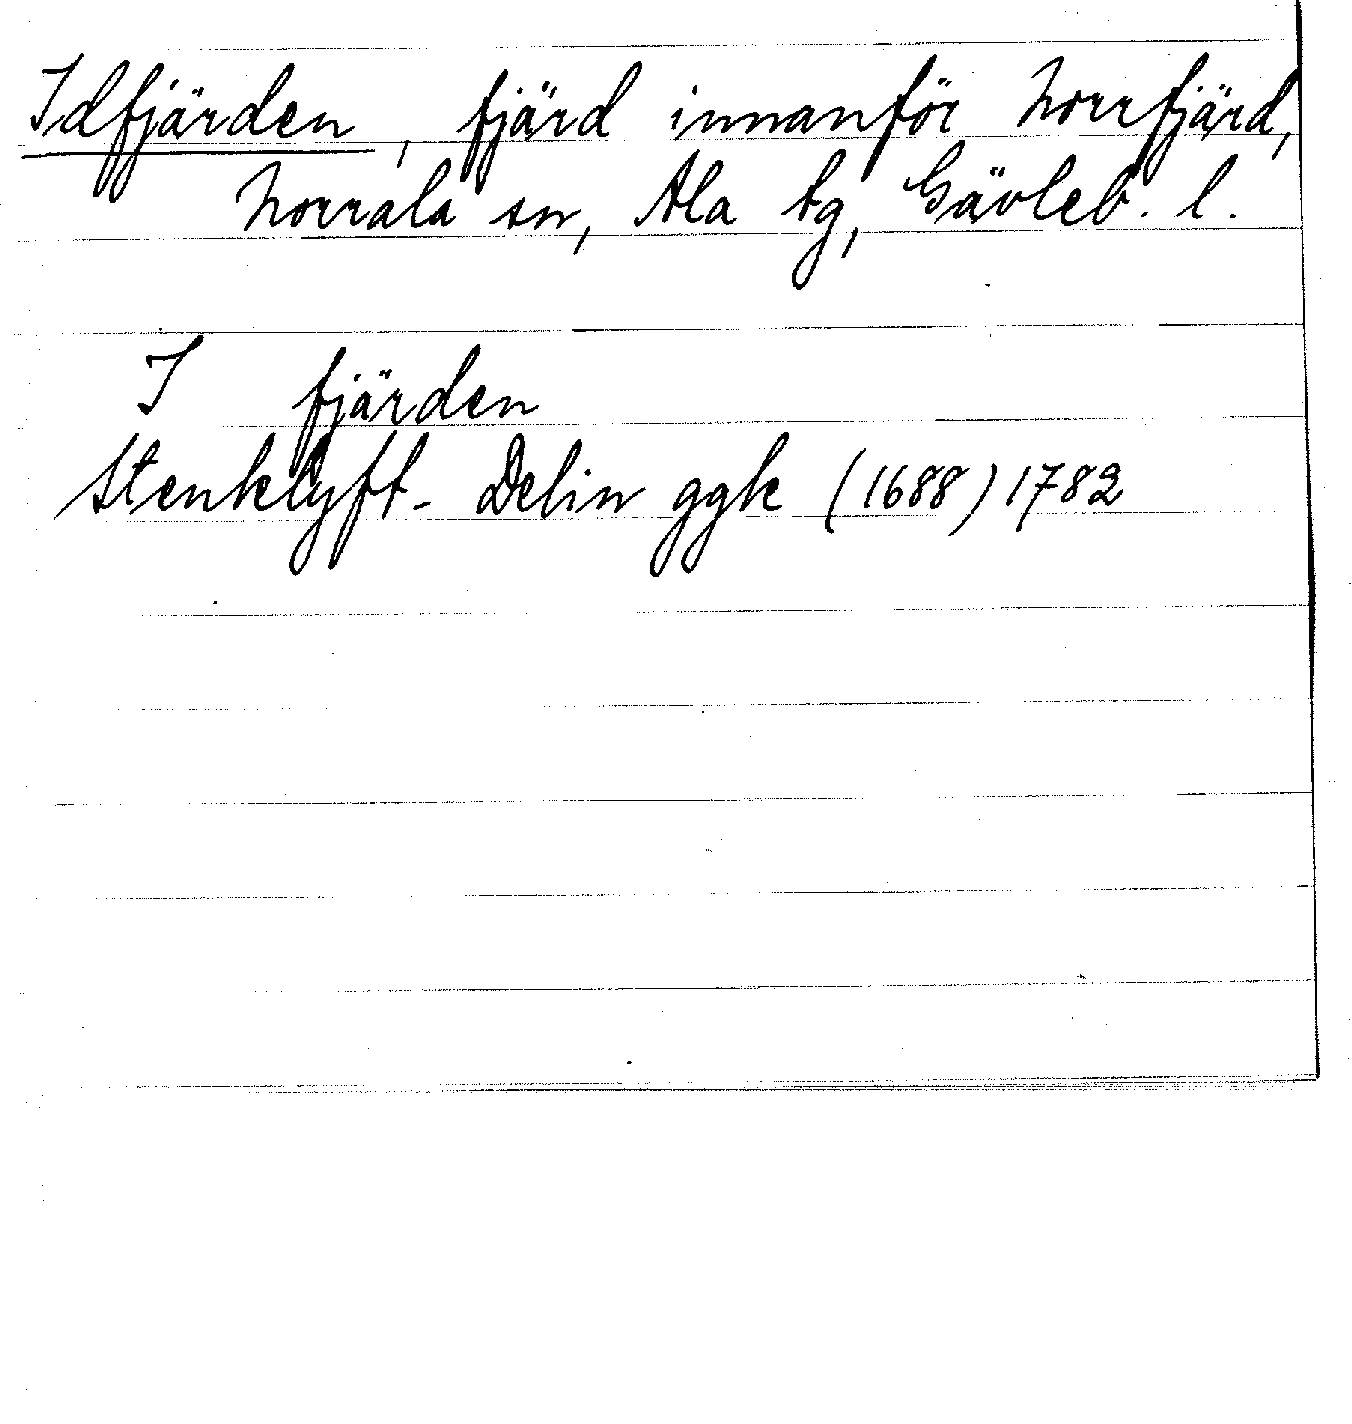 Idfjärden, fjärd innanför Norrfjärd,
Norrala sn, Ala tg, Gävleb. l.
I fjärden
Stenklyft - Delin ggk (1688) 1782